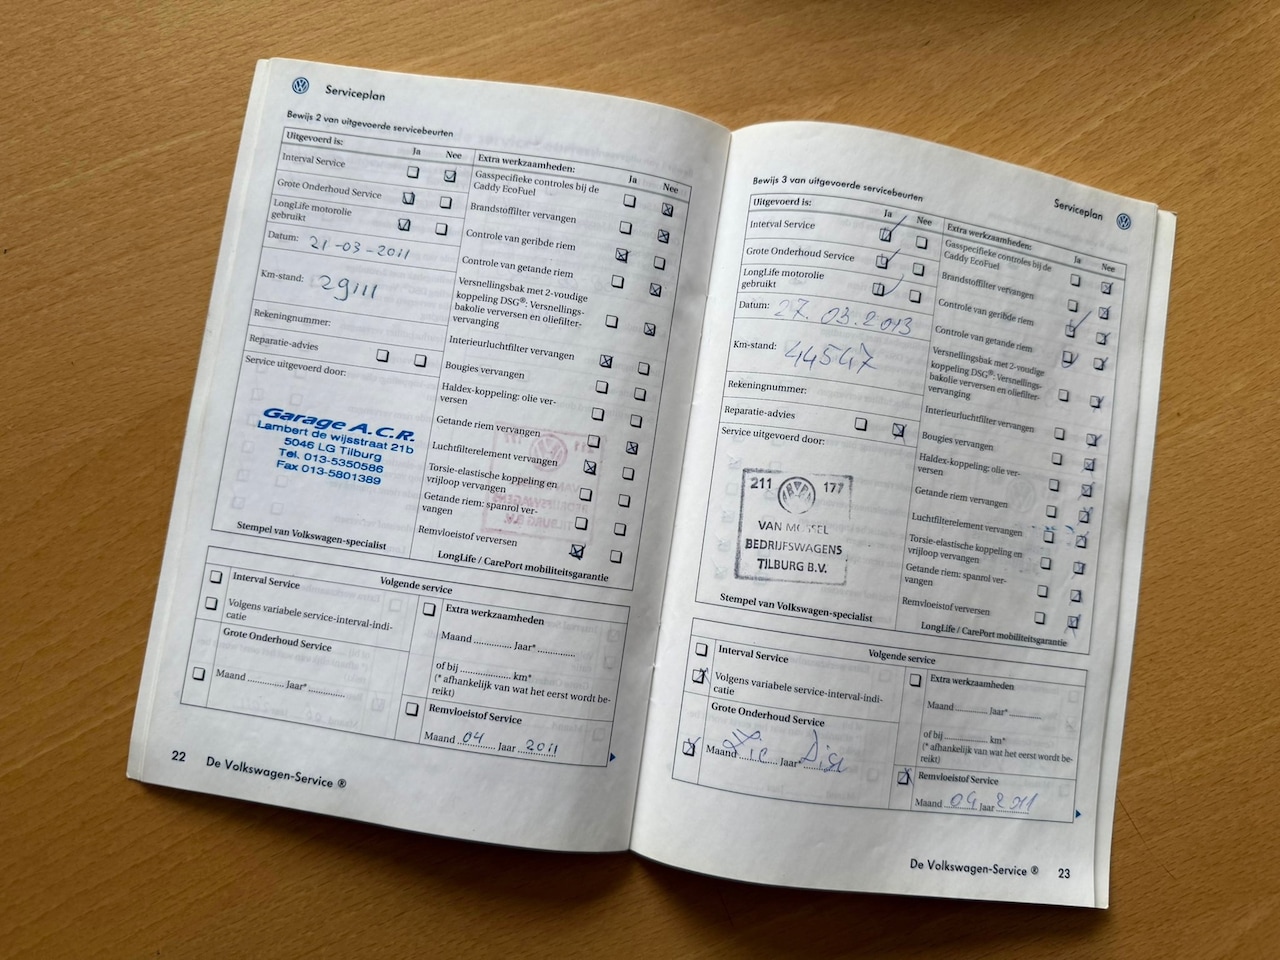 Serviceplan
Bewijs 2 van uitgevoerde servicebeurten
Uitgevoerd is:
Ja
Nee
Interval Service
Grote Onderhoud Service
LongLife motorolie
gebruikt
Datum: 21-03-2011
Km-stand: 29111
Rekeningnummer:
Reparatie-advies
Service uitgevoerd door:
Garage A.C.R.
Lambert de wijsstraat 21b
5046 LG Tilburg
Tel. 013-5350586
Fax 013-5801389
Stempel van Volkswagen-specialist
Extra werkzaamheden:
Ja
Nee
Gasspecifieke controles bij de
Caddy EcoFuel
Brandstoffilter vervangen
Controle van geribde riem
Controle van getande riem
Versnellingsbak met 2-voudige
koppeling DSG®: Versnellings-
bakolie verversen en oliefilter-
vervanging
Interieurluchtfilter vervangen
Bougies vervangen
Haldex-koppeling: olie ver-
versen
Getande riem vervangen
Luchtfilterelement vervangen
Torsie-elastische koppeling en
vrijloop vervangen
Getande riem: spanrol ver-
vangen
Remvloeistof verversen
LongLife / CarePort mobiliteitsgarantie
Volgende service
Interval Service
Volgens variabele service-interval-indi-
catie
Grote Onderhoud Service
Maand ............. Jaar* .............
Extra werkzaamheden
Maand ............. Jaar* .............
of bij ............. km*
(* afhankelijk van wat het eerst wordt be-
reikt)
Remvloeistof Service
Maand 04 Jaar 2011
22
De Volkswagen-Service ®
Serviceplan
Bewijs 3 van uitgevoerde servicebeurten
Uitgevoerd is:
Ja
Nee
Interval Service
Grote Onderhoud Service
LongLife motorolie
gebruikt
Datum: 27.03.2013
Km-stand: 44547
Rekeningnummer:
Reparatie-advies
Service uitgevoerd door:
211 177
VAN MOSSEL
BEDRIJFSWAGENS
TILBURG B.V.
Stempel van Volkswagen-specialist
Extra werkzaamheden:
Ja
Nee
Gasspecifieke controles bij de
Caddy EcoFuel
Brandstoffilter vervangen
Controle van geribde riem
Controle van getande riem
Versnellingsbak met 2-voudige
koppeling DSG®: Versnellings-
bakolie verversen en oliefilter-
vervanging
Interieurluchtfilter vervangen
Bougies vervangen
Haldex-koppeling: olie ver-
versen
Getande riem vervangen
Luchtfilterelement vervangen
Torsie-elastische koppeling en
vrijloop vervangen
Getande riem: spanrol ver-
vangen
Remvloeistof verversen
LongLife / CarePort mobiliteitsgarantie
Volgende service
Interval Service
Volgens variabele service-interval-indi-
catie
Grote Onderhoud Service
Maand Zie Jaar
Extra werkzaamheden
Maand ............. Jaar* .............
of bij ............. km*
(* afhankelijk van wat het eerst wordt be-
reikt)
Remvloeistof Service
Maand 04 Jaar 2011
De Volkswagen-Service ®
23